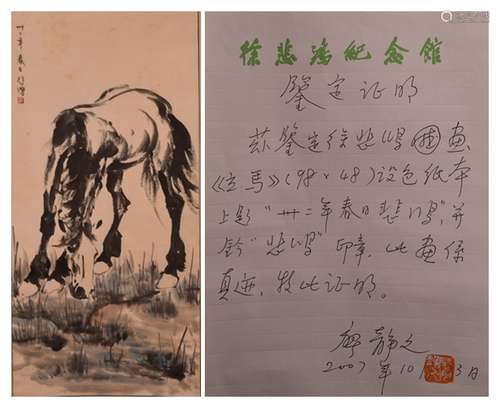 卅二年春日悲鴻
徐悲鴻紀念館
鑒定证明
兹鑒定徐悲鸿国画
《立马》(98×48)设色纸本
上题“卅二年春日悲鸿”,并
钤“悲鸿”印章,此画係
真迹,特此证明。
廖静文
2007年10月3日